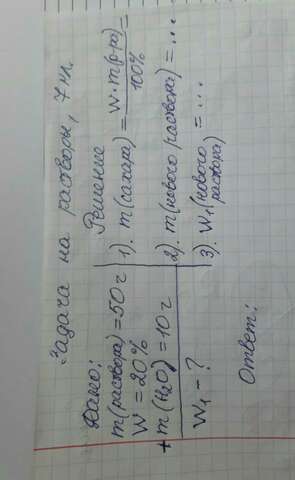 Задача на растворы, 7 кл.
Дано:
m(раствора) = 50 г
W = 20%
+ m(H₂O) = 10 г
W₁ - ?
Решение
1). m(сахара) = W · m(р-ра) / 100% =
2). m(нового раствора) = ...
3). W₁(нового раствора) = ...
Ответ: